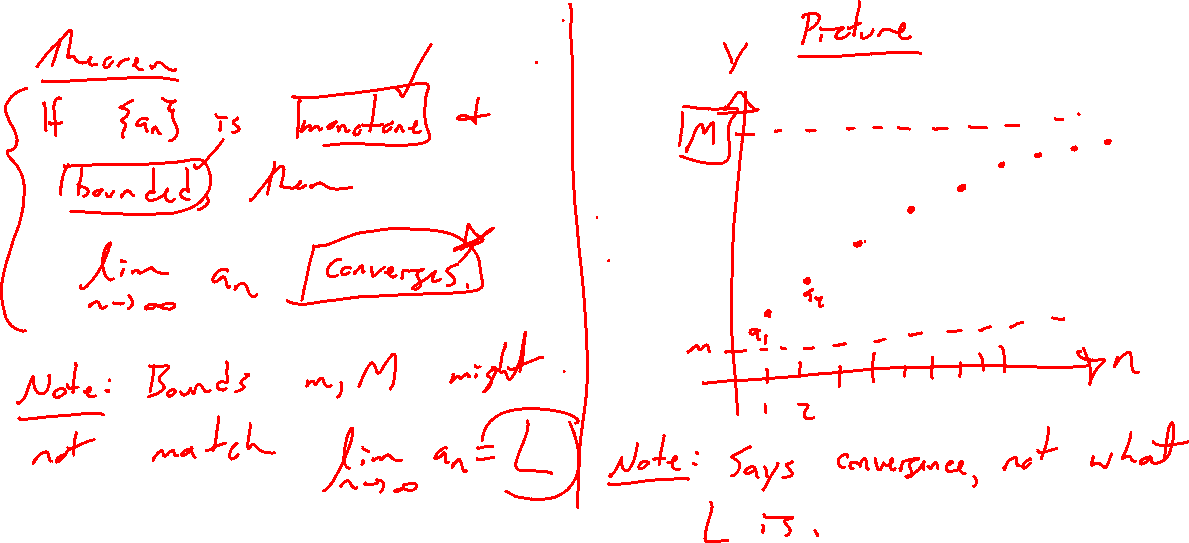 Theorem
If {aₙ} is monotone &
bounded, then
lim aₙ converges.
n→∞
Note: Bounds m, M might
not match lim aₙ = L
n→∞
Picture
y
M
a₂
a₁
m
n
1 2
Note: Says convergence, not what
L is.